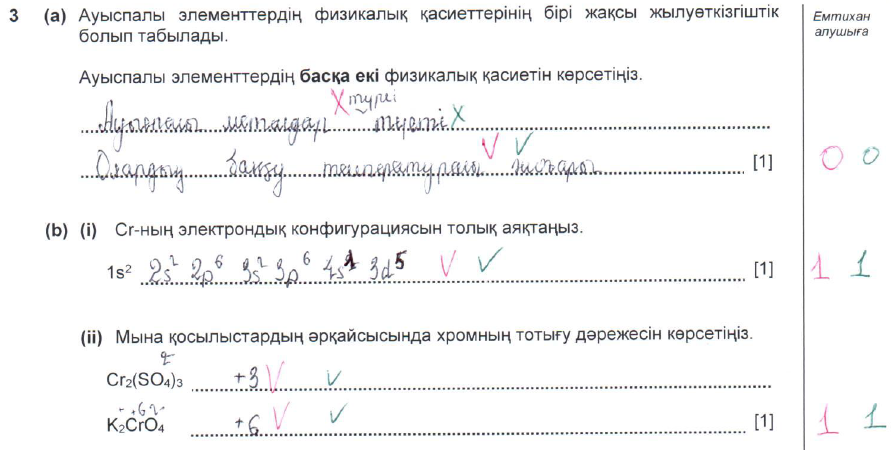 3 (a) Ауыспалы элементтердің физикалық қасиеттерінің бірі жақсы жылуөткізгіштік
болып табылады.
Емтихан
алушыға
Ауыспалы элементтердің басқа екі физикалық қасиетін көрсетіңіз.
түрлі
Ауыспалы металдар түсті
Олардың балқу температурасы жоғары [1] 0 0
(b) (i) Cr-ның электрондық конфигурациясын толық аяқтаңыз.
1s² 2s² 2p⁶ 3s² 3p⁶ 4s¹ 3d⁵ [1] 1 1
(ii) Мына қосылыстардың әрқайсысында хромның тотығу дәрежесін көрсетіңіз.
Cr₂(SO₄)₃ +3
K₂CrO₄ +6 [1] 1 1